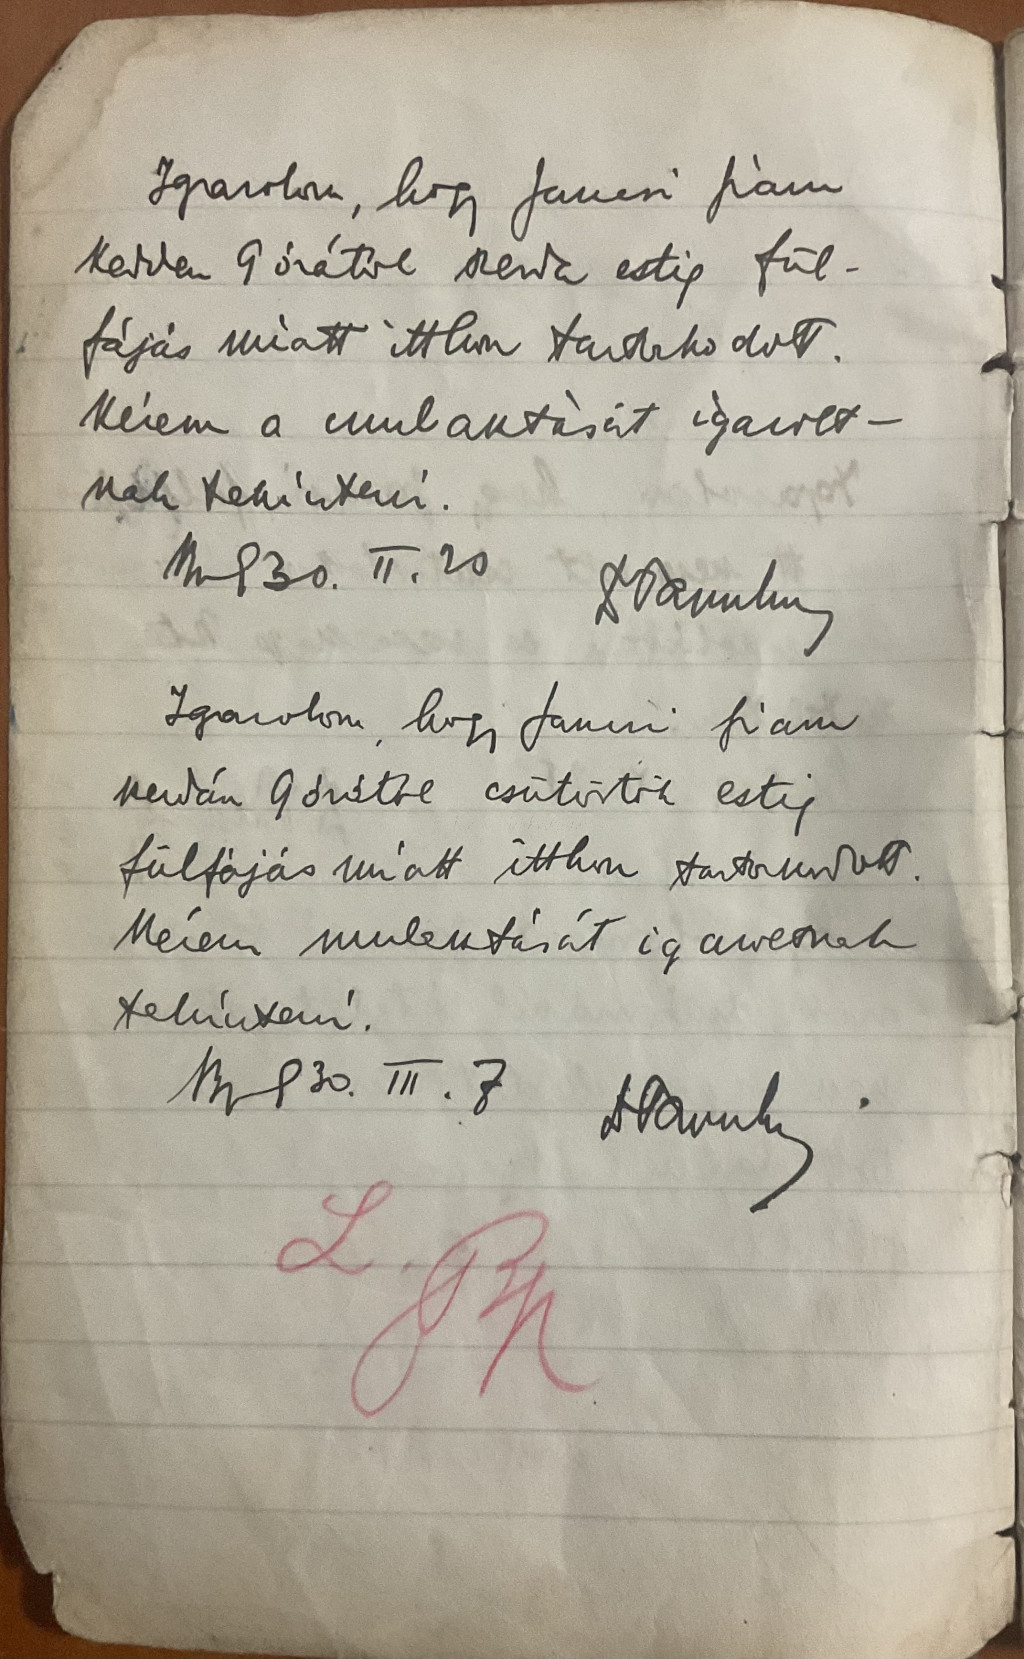 Igazolom, hogy Jancsi fiam
kedden 9 órától szerda estig fül-
fájás miatt itthon tartózkodott.
Kérem a mulasztását igazolt-
nak tekinteni.
Bp 930. II. 20
Igazolom, hogy Jancsi fiam
szerdán 9 órától csütörtök estig
fülfájás miatt itthon tartózkodott.
Kérem mulasztását igazoltnak
tekinteni.
Bp 930. III. 7
L.